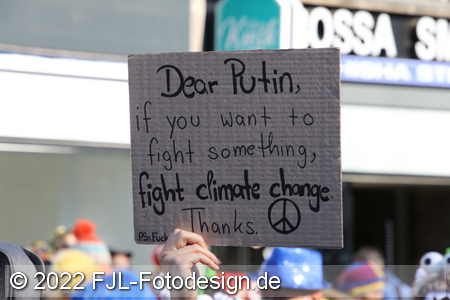 OSSA SM
Dear Putin,
if you want to
fight something,
fight climate change.
Thanks.
© 2022 FJL-Fotodesign.de